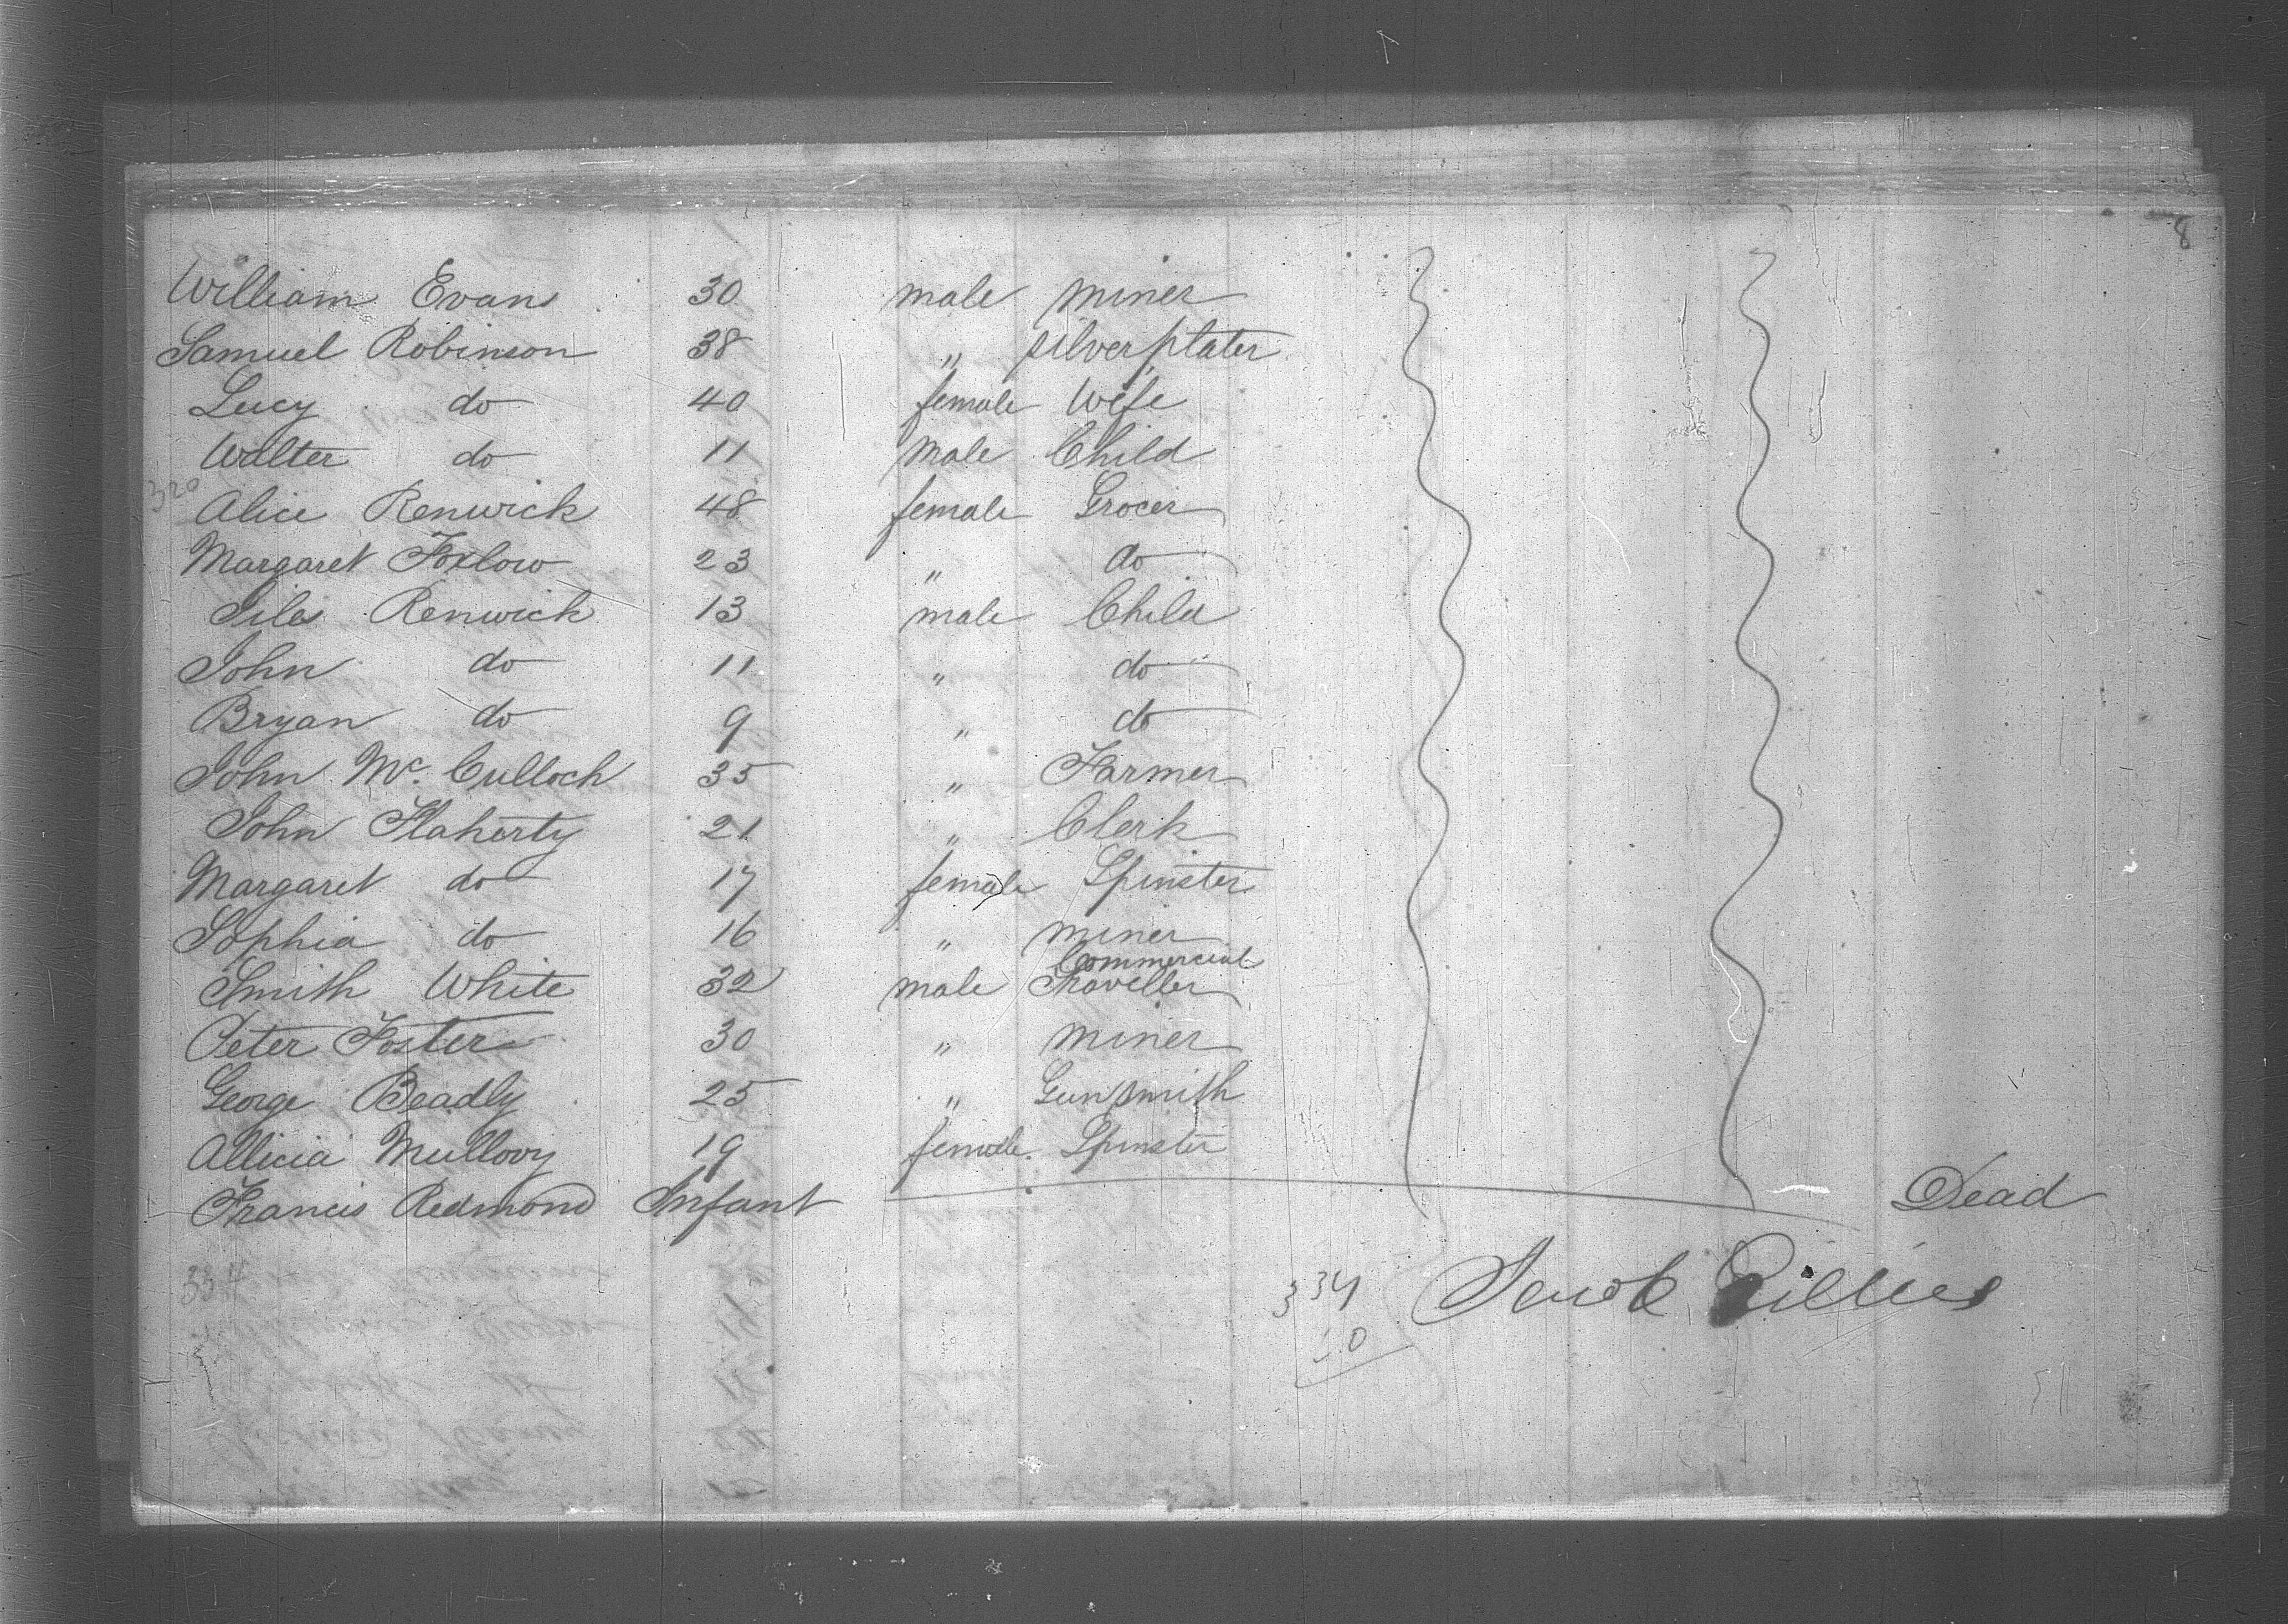 8
William Evans 30 male miner
Samuel Robinson 38 " silverplater
Lucy do 40 female Wife
Walter do 11 male Child
320
Alice Renwick 48 female Grocer
Margaret Foxlow 23 " do
Giles Renwick 13 male Child
John do 11 " do
Bryan do 9 " do
John Mc. Culloch 35 " Farmer
John Flaherty 21 " Clerk
Margaret do 17 female Spinster
Sophia do 16 " miner
Smith White 32 male Commercial Traveller
Peter Foster 30 " miner
George Beadly 25 " Gunsmith
Allicia Mullovy 19 female Spinster
Francis Redmond Infant Dead
334
334